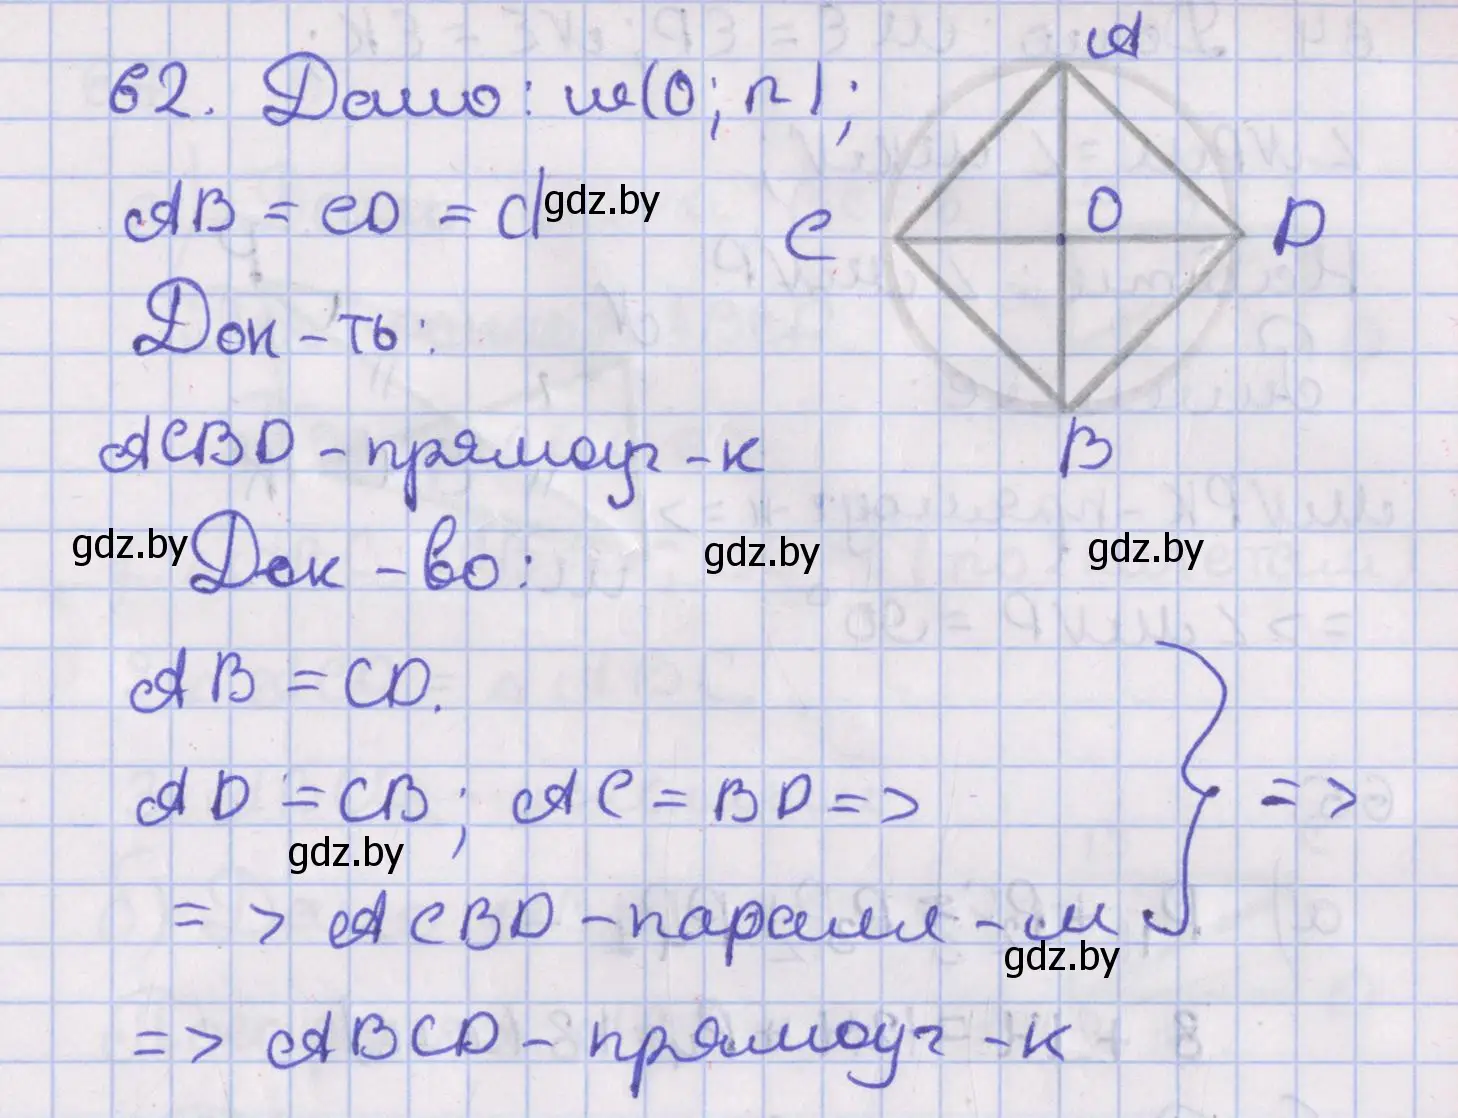 62. Дано: w(O; r);
A
AB = CD = d gdz.by
C O D
Док-ть:
ACBD - прямоуг-к
B
gdz.by Док-во: gdz.by gdz.by
AB = CD.
AD = CB; AC = BD =>
=>
gdz.by
=> ACBD - паралл-м
gdz.by
=> ABCD - прямоуг-к